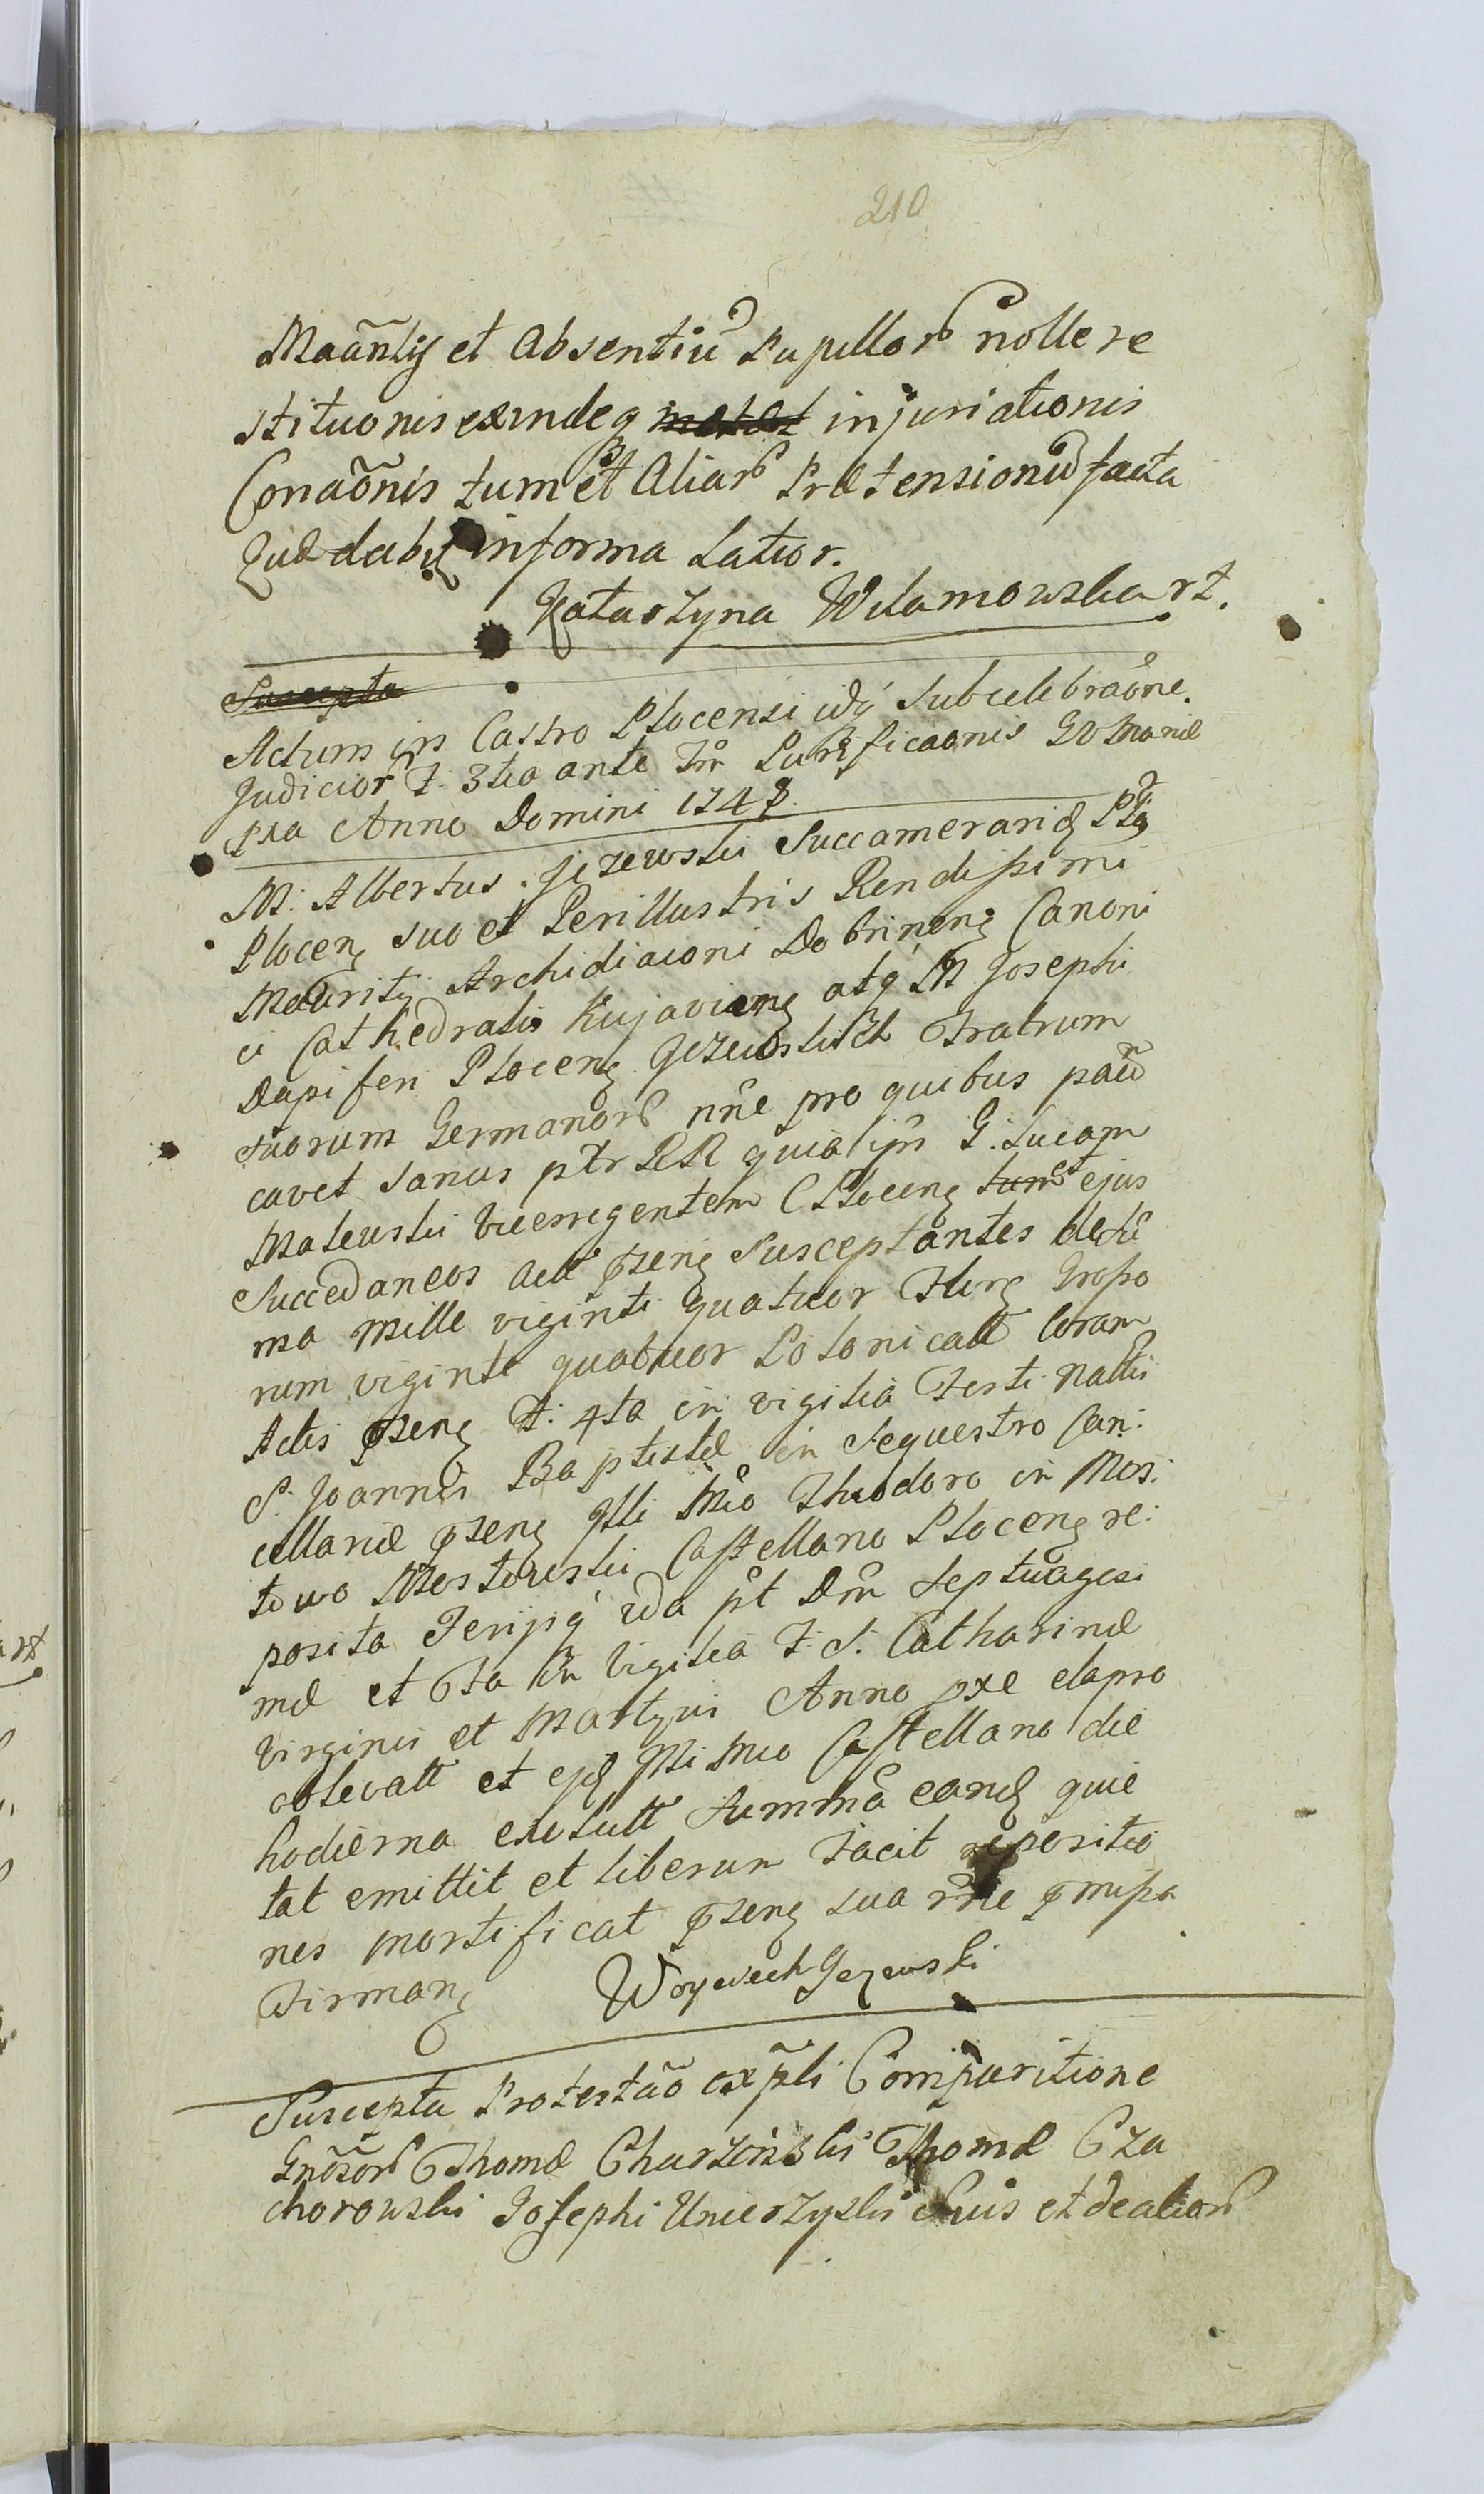 210
Maãntis et Absentiũ Pupillor nolle re
stituonis exindeq injuriationis
Conaõnis tum et Aliar Prætensionũ facta
Quæ dabit in forma Latior.
Katarzyna Wilamowska rt.
Suscepta
Actum in Castro Plocensi idq Sub celebraõne
Judicior F. 3tia ante Fm Purificaonis BV Mariæ
pxa Anno Domini 1748.
M. Albertus Jezewski Succamerarid
Plocen suo et Perillustris Rendissimi
Mauritii Archidiaconi Dobrinen Canoni
ci Cathedralis Kujavien atq M Josephi
Dapiferi Plocen Jezewskich Fratrum
suorum Germanor nne pro quibus
cavet sanus ptr RR quia ipsi G. Lucam
Malewski Vicerregentem C Plocen tum et ejus
Succedaneos Act pzen Susceptantes de Sũ
ma Mille viginti quatuor Flren Grosso
rum viginti quatuor Polonicall Coram
Actis pzen F. 4ta in vigilia Festi Nattis
S. Joannis Baptistæ in Sequestro Can:
cellariæ pzen Illi Mco Theodoro in Mos:
towo Mostowski Castellano Plocen re:
posita Ferijsq 2da pt Dm Septuagesi
mæ et 6ta in Vigilia F. S. Catharinæ
Virginis et Martyris Anno pxe elapso
oblevatt et ejd Illi Mco Castellano die
hodierna exolutt Summa eand quie
tat emittit et liberum Facit repositio
nes mortificat pzen sua rne pmissa
Firman
Woyciech Jezewski
Suscepta Protestaõ expli Comparitione
Gnõsor Thomæ Charzinski Thomæ Cza
chorowski Josephi Unierzyski Suis et de alior
rt